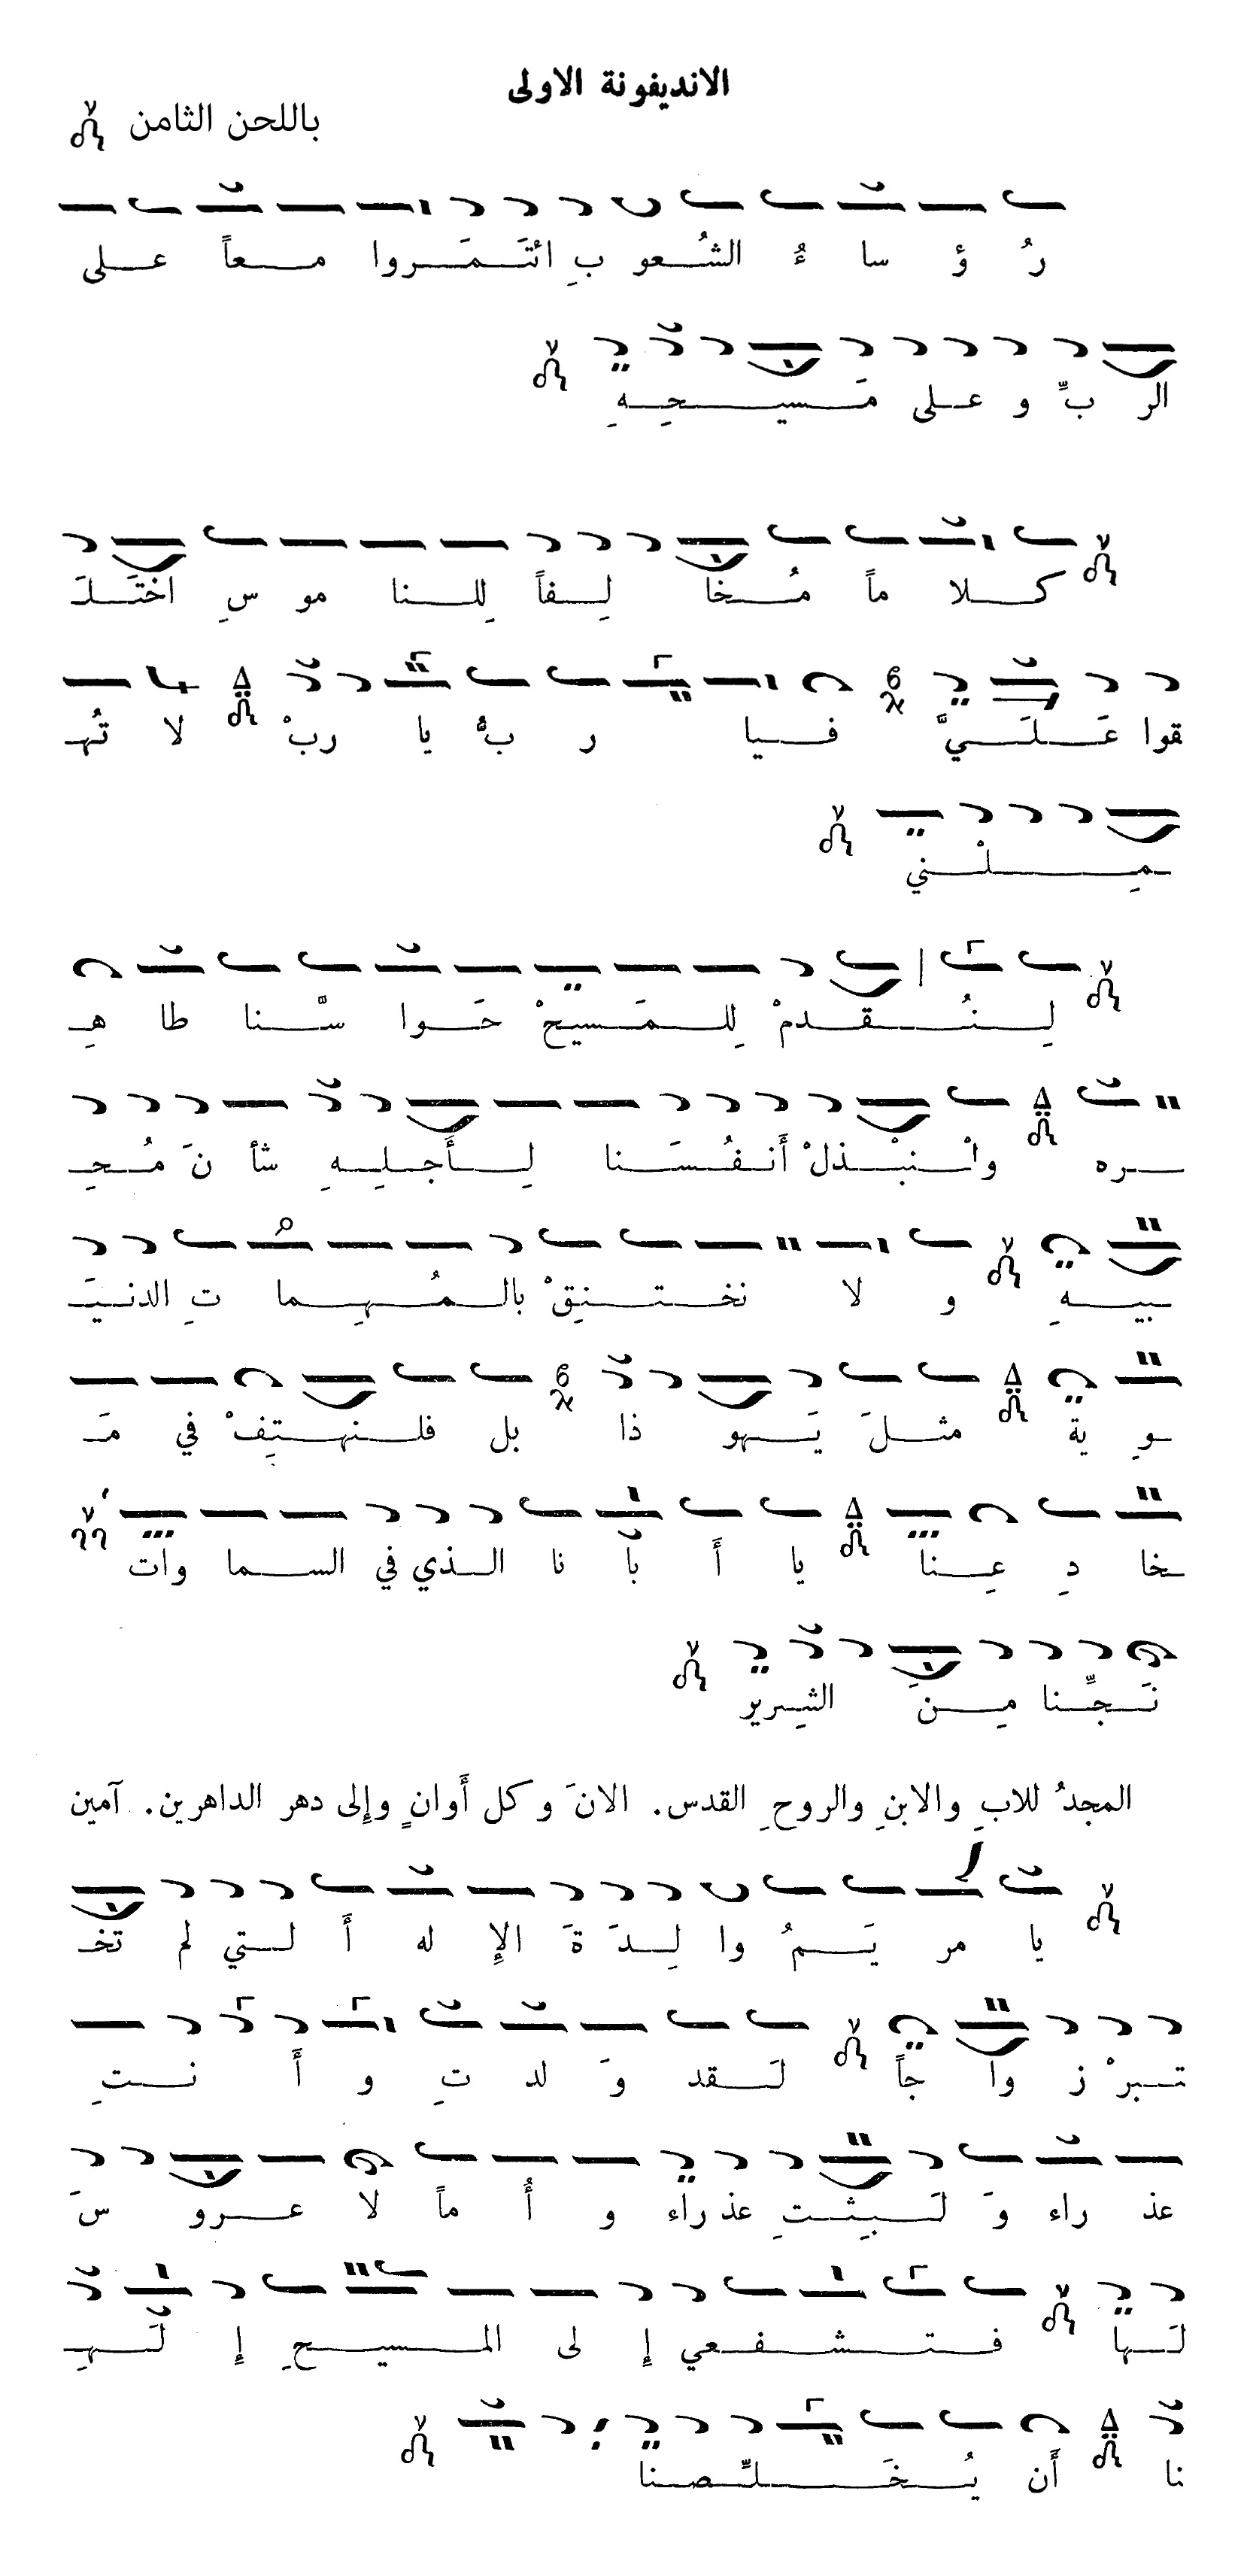 الانديفونة الاولى
باللحن الثامن
رُ ؤ سا ءُ الشُـعو بِ ائتَـمَـروا مـعاً عـلى
الر بِّ و عـلى مَـسيـحِـهِ
كـلا ماً مُـخا لِـفاً لِلـنا مو سِ اختَـلَـ
ـقوا عَـلَـيَّ فـيا ر بُّ يا ربْ لا تُهـ
ـمِـلْـني
لِـنُـقـدمْ لِلـمَـسيحْ حَـوا سَّـنا طا هِـ
ـره وأنـبْـذلْ أَنـفُـسَـنا لِـأَجـلِـهِ شأ نَ مُـحِـ
ـبيـهِ و لا نخـتـنِقْ بالـمُـهِـما تِ الدنـيَـ
ـوِ ية مثـلَ يَـهو ذا بل فلـنهـتِفْ في مَـ
ـخا دِ عِـنا يا أَ با نا الـذي في السـما وات
نَـجِّـنا مِـنَ الشِرير
المجدُ للابِ والابنِ والروحِ القدس. الانَ وكل أَوانٍ وإلى دهر الداهرين. آمين
يا مر يَـمُ وا لِـدَ ةَ الإِ له أَ لـتي لم تخـ
ـتـبرْ ز وا جاً لَـقد وَ لد تِ و أَ نـتِ
عذ راء وَ لَـبِثـتِ عذ راء و أُ ماً لا عـرو سَ
لَـها فـتـشـفـعي إِ لى المـسيـحِ إِ لَـهِـ
نا أَن يُـخَـلـِّصـنا